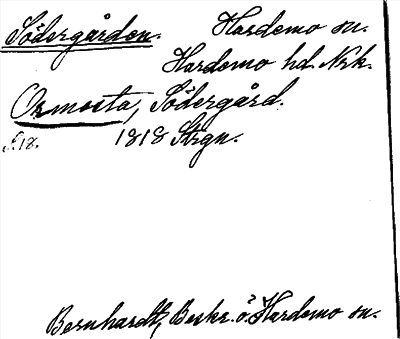 Södergården. Hardemo sn.
Hardemo hd. Nrk.
Ormesta, Södergård.
1818 Strgn.
Bernhardt, Beskr. ö. Hardemo sn.